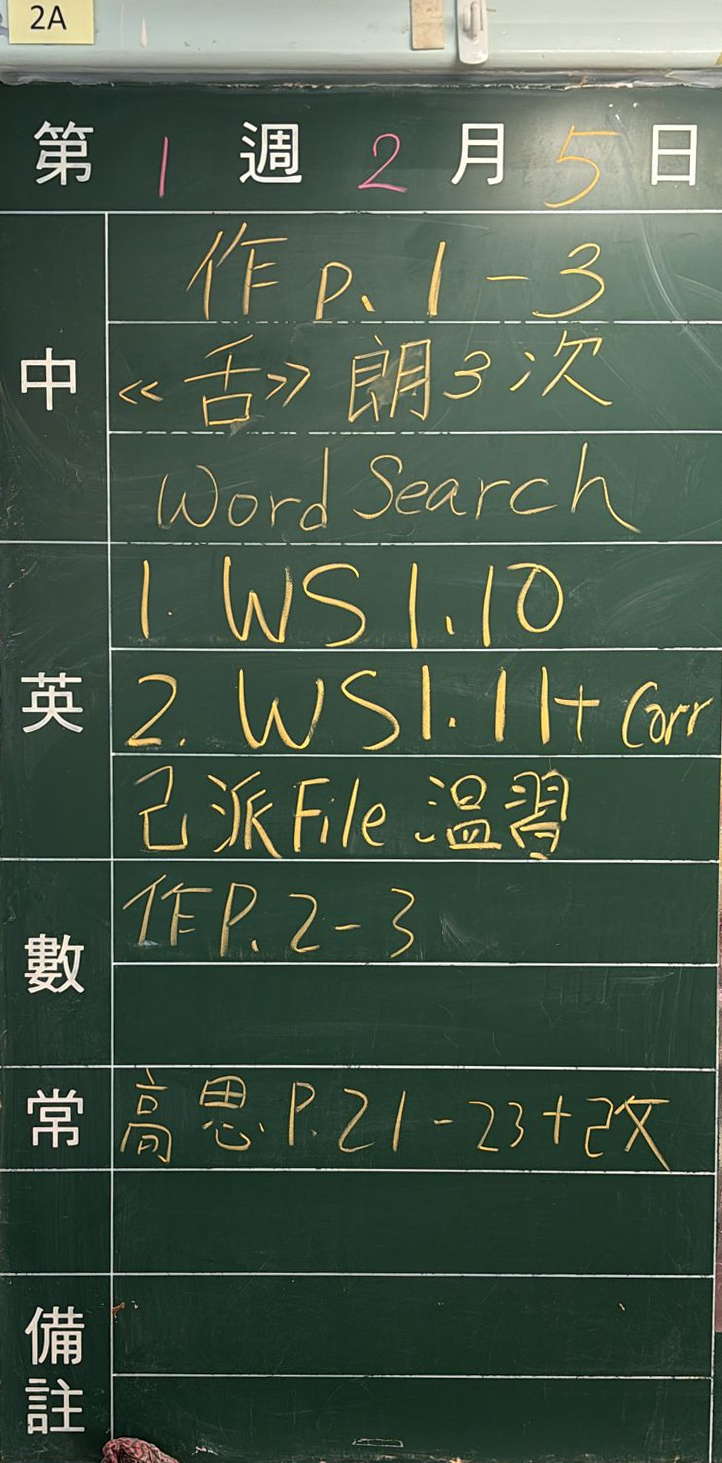 2A
第 1 週 2 月 5 日
中
作 p. 1-3
«舌» 朗3次
Word Search
英
1. WS 1.10
2. WS 1.11 + Corr
己派File 溫習
數
作P. 2-3
常
高思 P. 21-23+改
備註